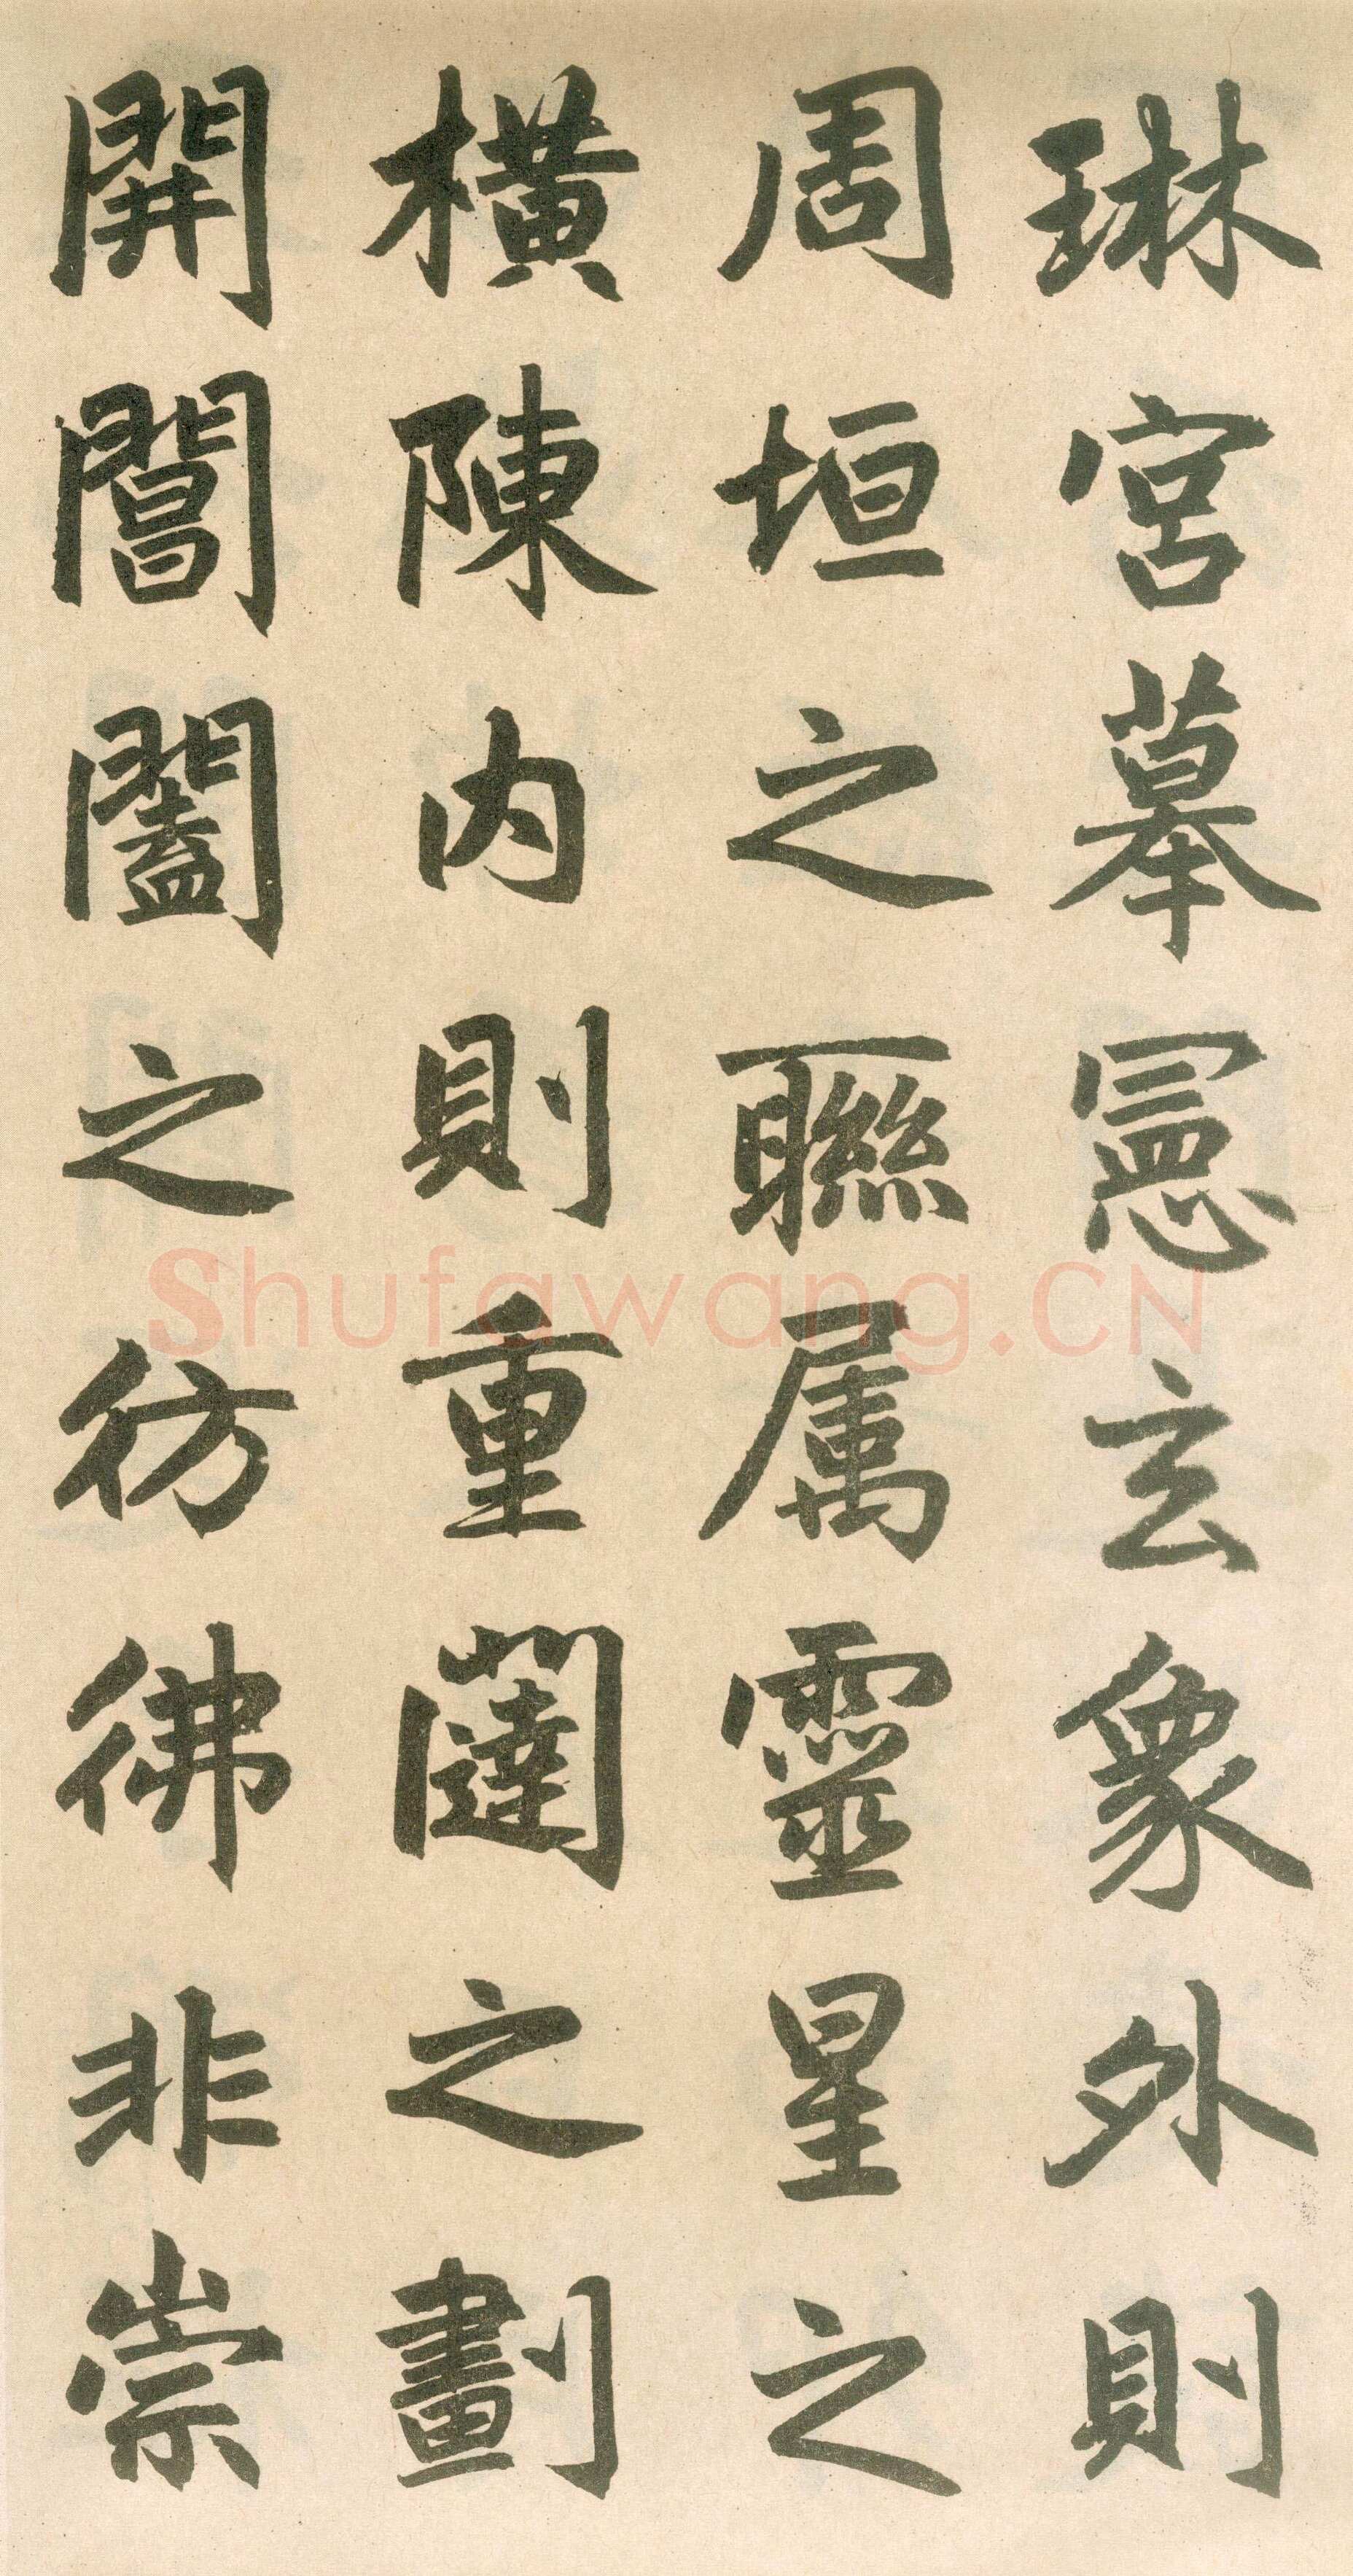 琳宮摹憲玄象外則
周垣之聯属靈星之
橫陳内則重闥之劃
開閶闔之彷彿非崇
Shufawang.CN